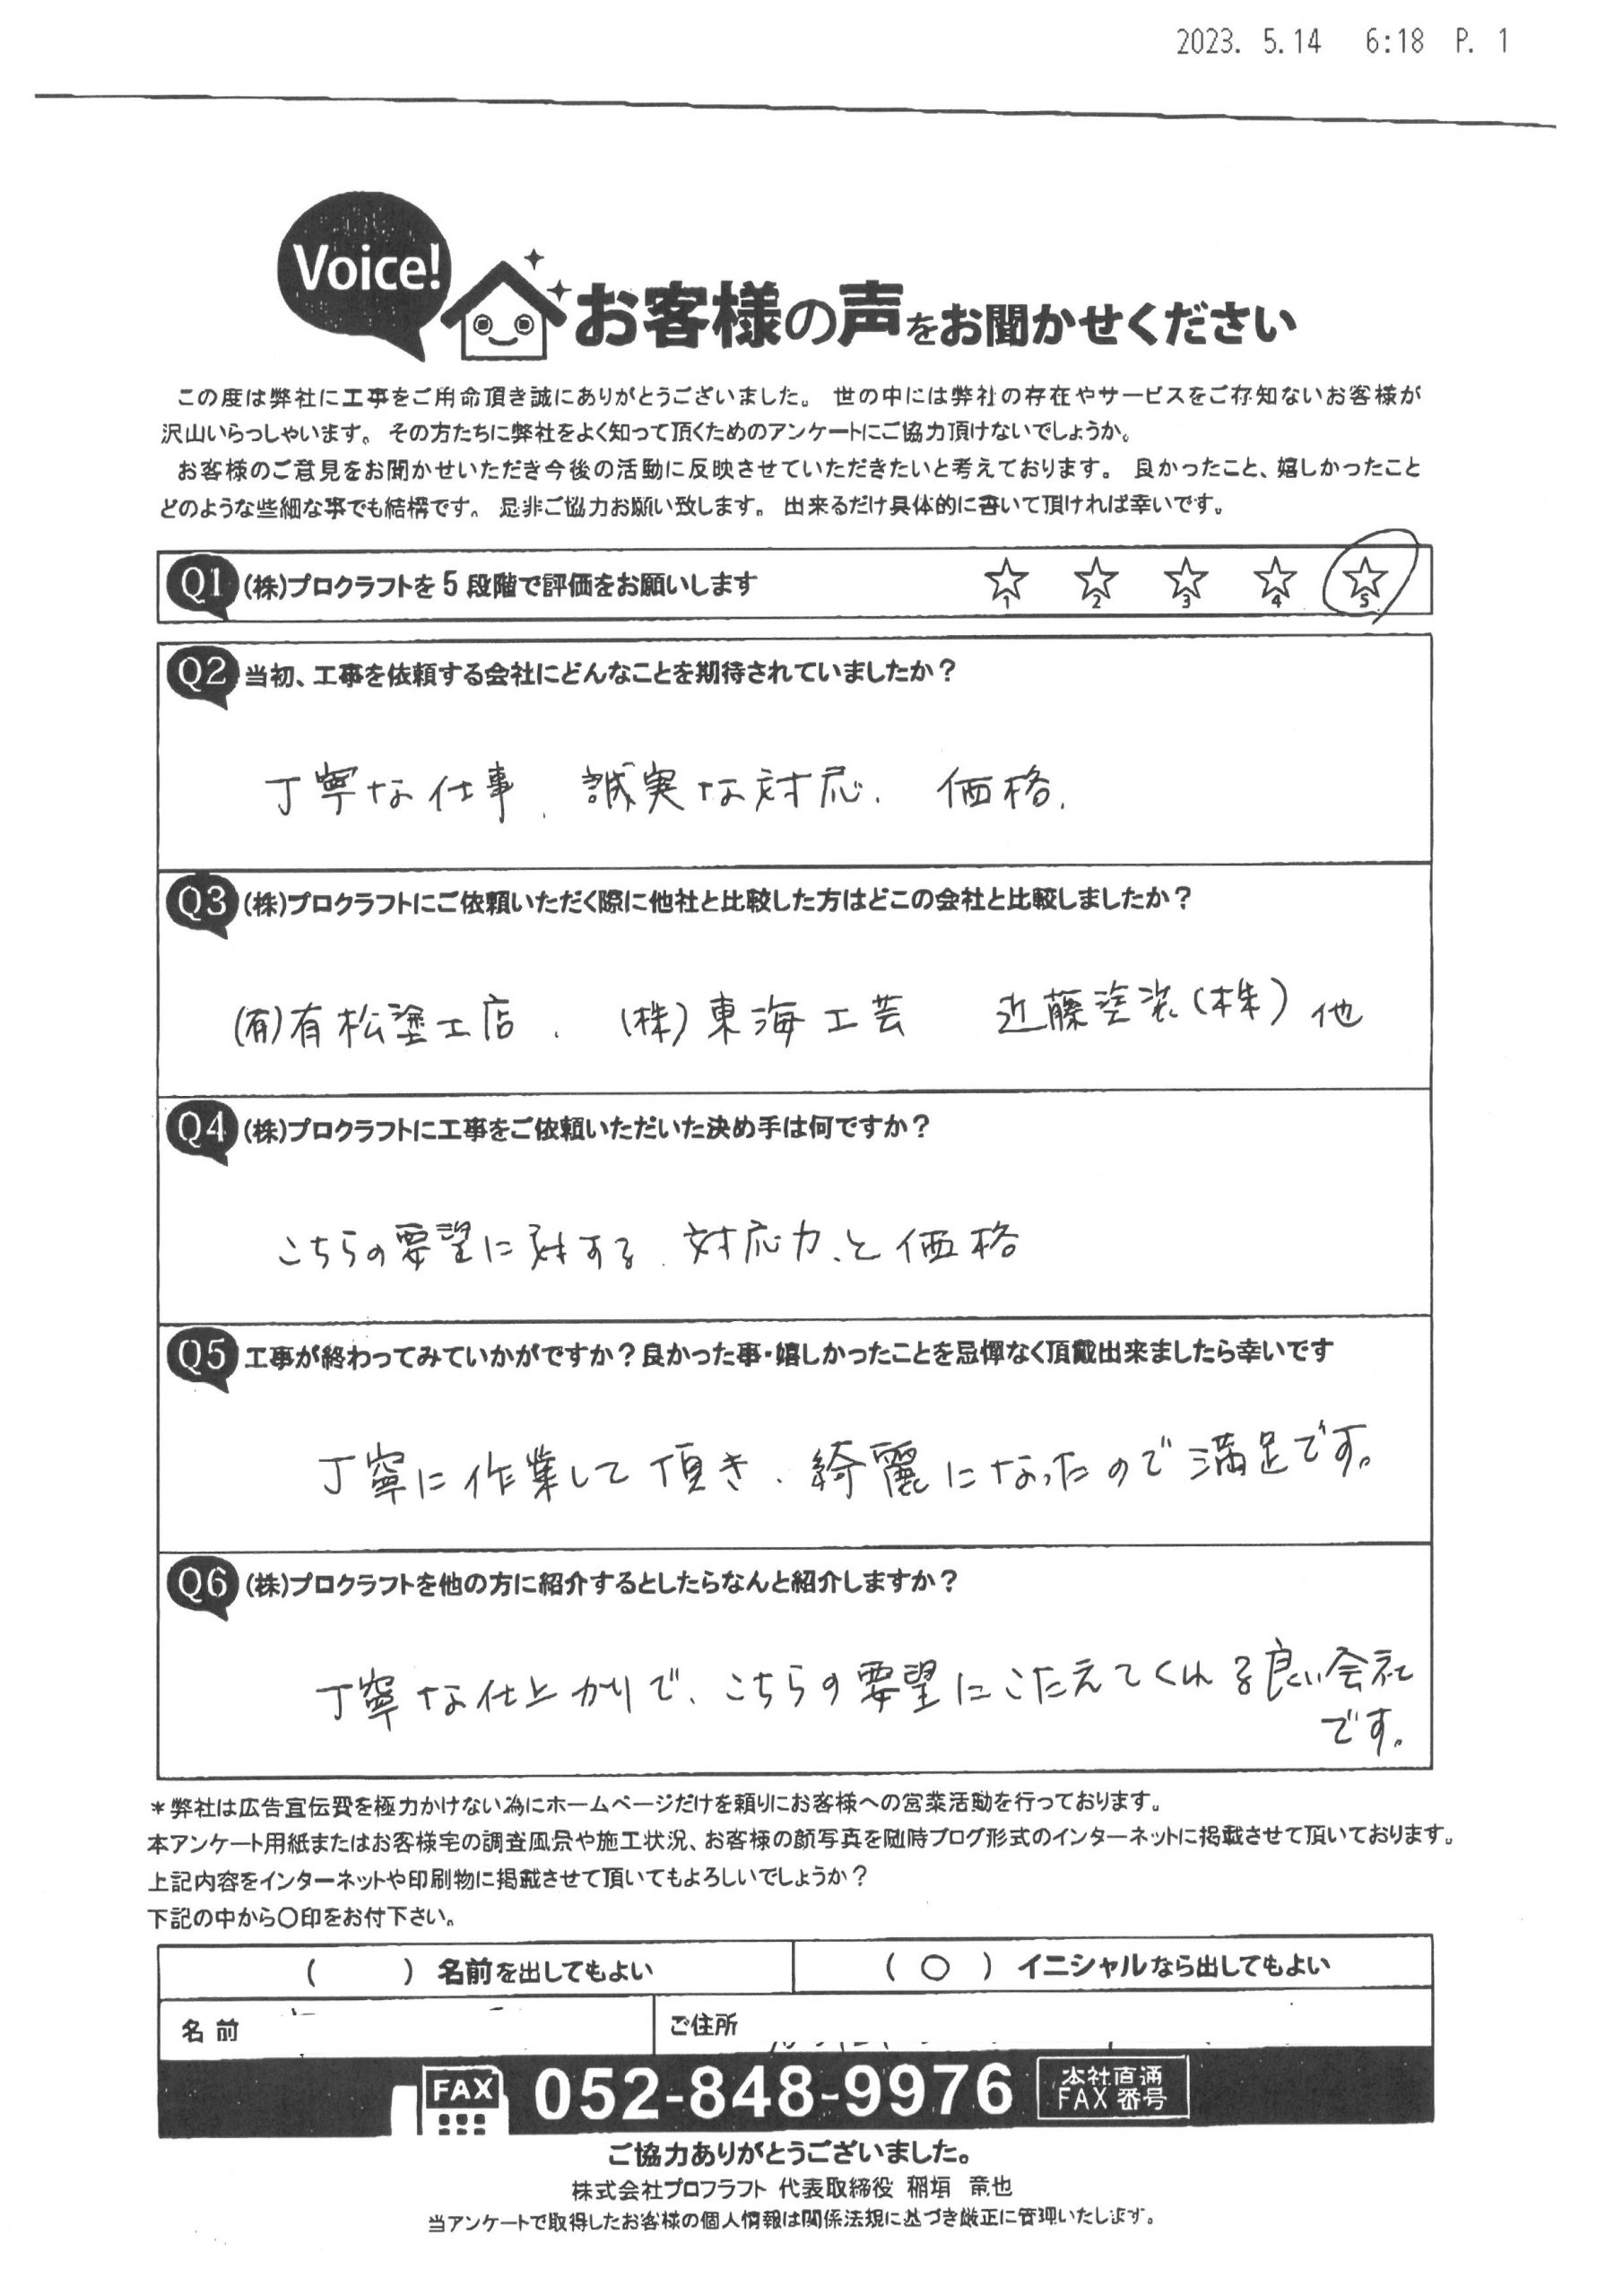 2023. 5.14 6:18 P. 1
Voice!
お客様の声をお聞かせください
この度は弊社に工事をご用命頂き誠にありがとうございました。 世の中には弊社の存在やサービスをご存知ないお客様が
沢山いらっしゃいます。 その方たちに弊社をよく知って頂くためのアンケートにご協力頂けないでしょうか。
お客様のご意見をお聞かせいただき今後の活動に反映させていただきたいと考えております。 良かったこと、嬉しかったこと
どのような些細な事でも結構です。 是非ご協力お願い致します。 出来るだけ具体的に書いて頂ければ幸いです。
Q1 (株)プロクラフトを5段階で評価をお願いします ☆1 ☆2 ☆3 ☆4 ☆5
Q2 当初、工事を依頼する会社にどんなことを期待されていましたか?
丁寧な仕事、誠実な対応、価格、
Q3 (株)プロクラフトにご依頼いただく際に他社と比較した方はどこの会社と比較しましたか?
(有)有松塗工店、 (株)東海工芸 近藤塗装(株) 他
Q4 (株)プロクラフトに工事をご依頼いただいた決め手は何ですか?
こちらの要望に対する、対応力、と価格
Q5 工事が終わってみていかがですか?良かった事・嬉しかったことを忌憚なく頂戴出来ましたら幸いです
丁寧に作業して頂き、綺麗になったので満足です。
Q6 (株)プロクラフトを他の方に紹介するとしたらなんと紹介しますか?
丁寧な仕上がりで、こちらの要望にこたえてくれる良い会社
です。
*弊社は広告宣伝費を極力かけない為にホームページだけを頼りにお客様への営業活動を行っております。
本アンケート用紙またはお客様宅の調査風景や施工状況、お客様の顔写真を随時ブログ形式のインターネットに掲載させて頂いております。
上記内容をインターネットや印刷物に掲載させて頂いてもよろしいでしょうか?
下記の中から〇印をお付下さい。
( ) 名前を出してもよい (○) イニシャルなら出してもよい
名前 ご住所
FAX 052-848-9976 本社直通
FAX番号
ご協力ありがとうございました。
株式会社プロフラフト 代表取締役 稲垣 竜也
当アンケートで取得したお客様の個人情報は関係法規に基づき厳正に管理いたします。